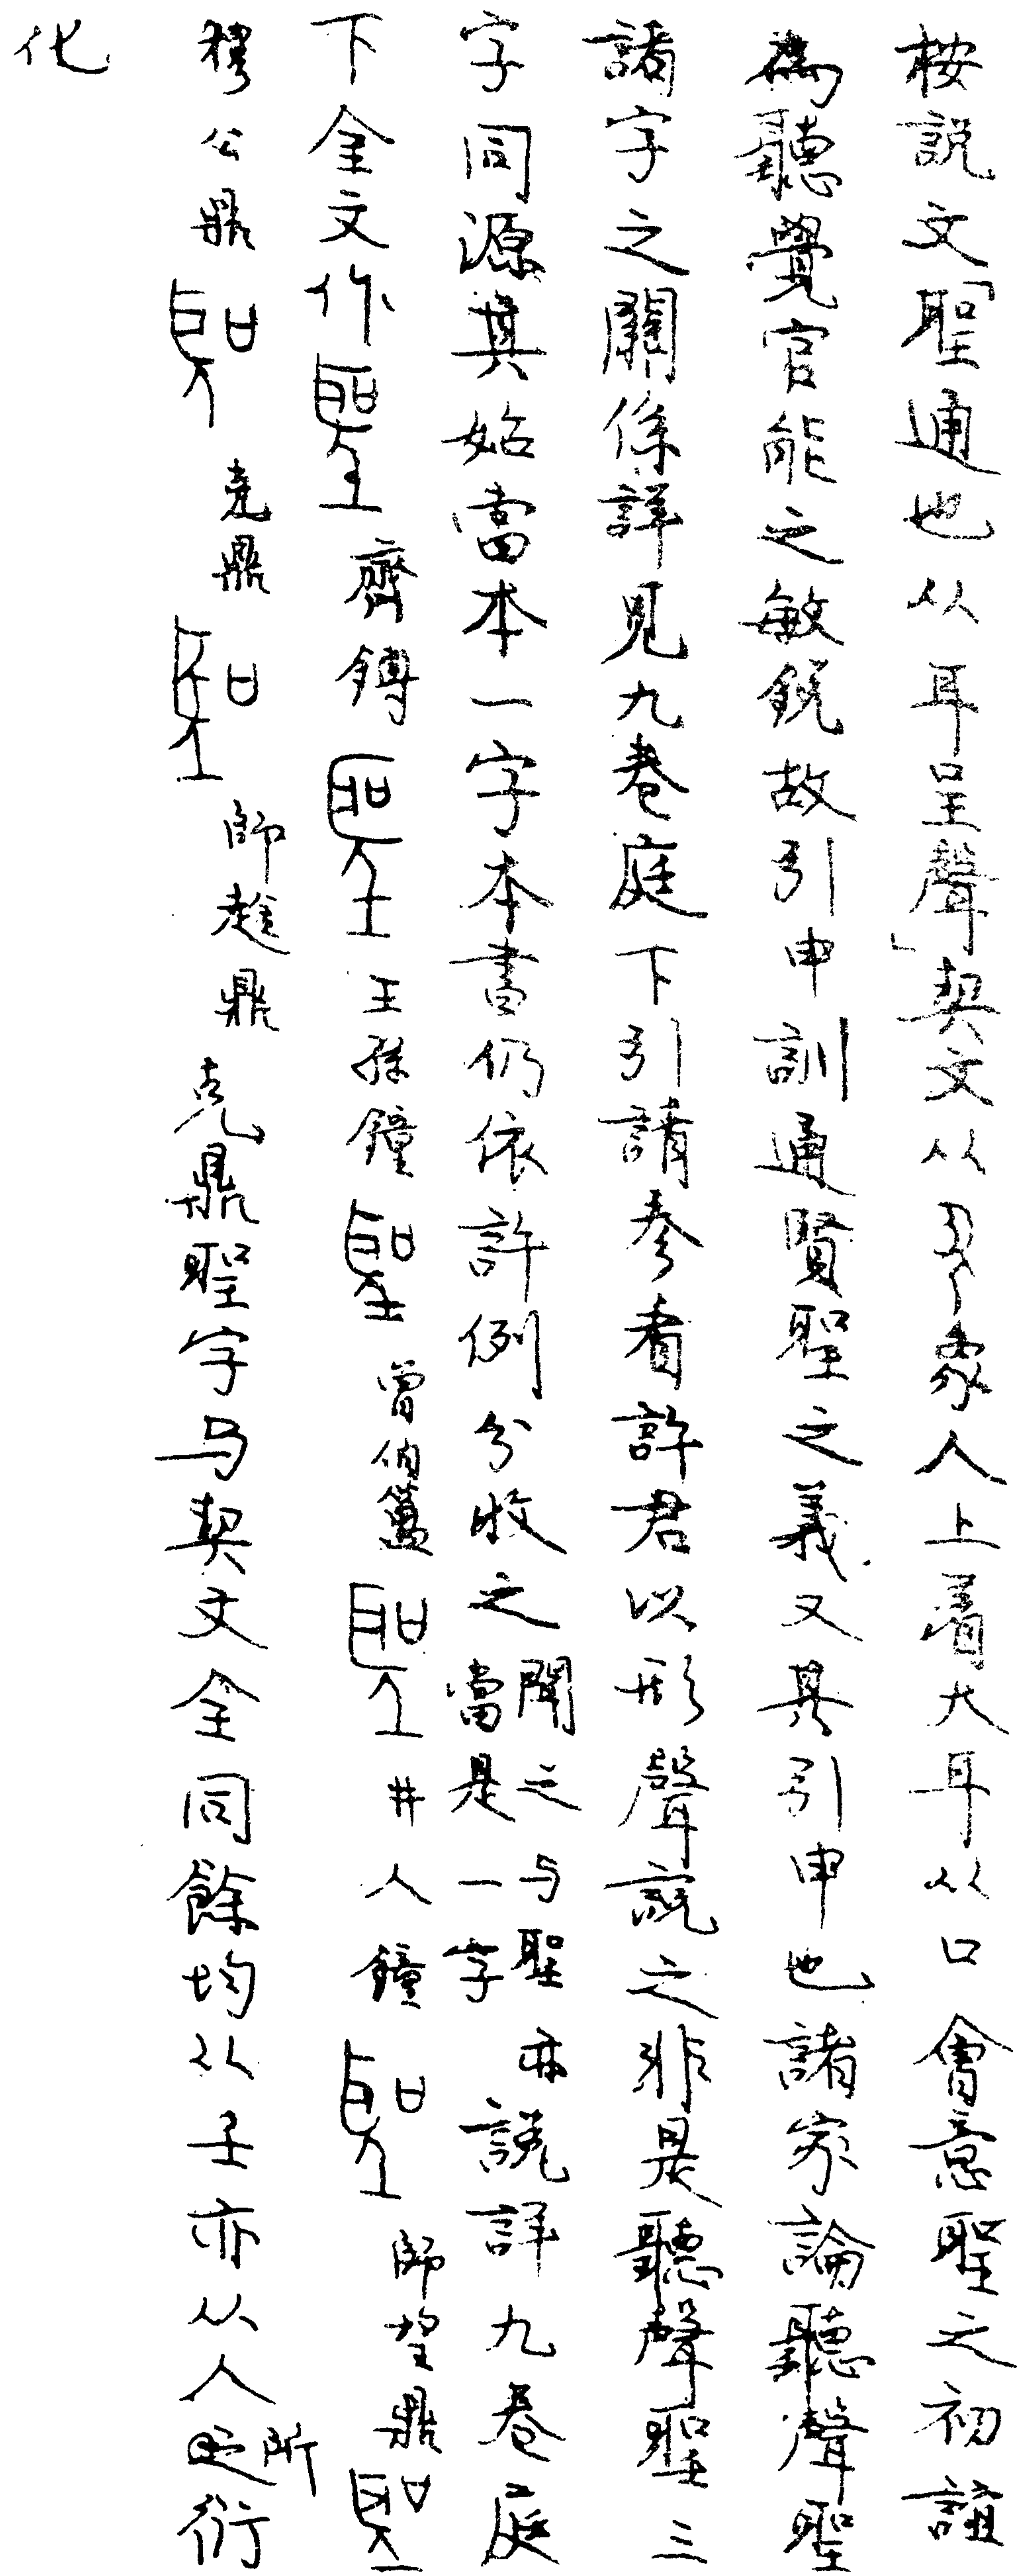 按說文「聖通也从耳呈聲」契文从象人上着大耳从口會意聖之初誼
為聽覺官能之敏銳故引申訓通賢聖之義又其引申也諸家論聽聲聖
諸字之關係詳見九卷庭下引請參看許君以形聲說之非是聽聲聖三
字同源其始當本一字本書仍依許例分收之聞之与聖亦當是一字說詳九卷庭
下金文作齊鎛王孫鐘曾伯簠井人鐘師望鼎
公鼎克鼎師趛鼎克鼎聖字与契文全同餘均从壬亦从人所衍
化